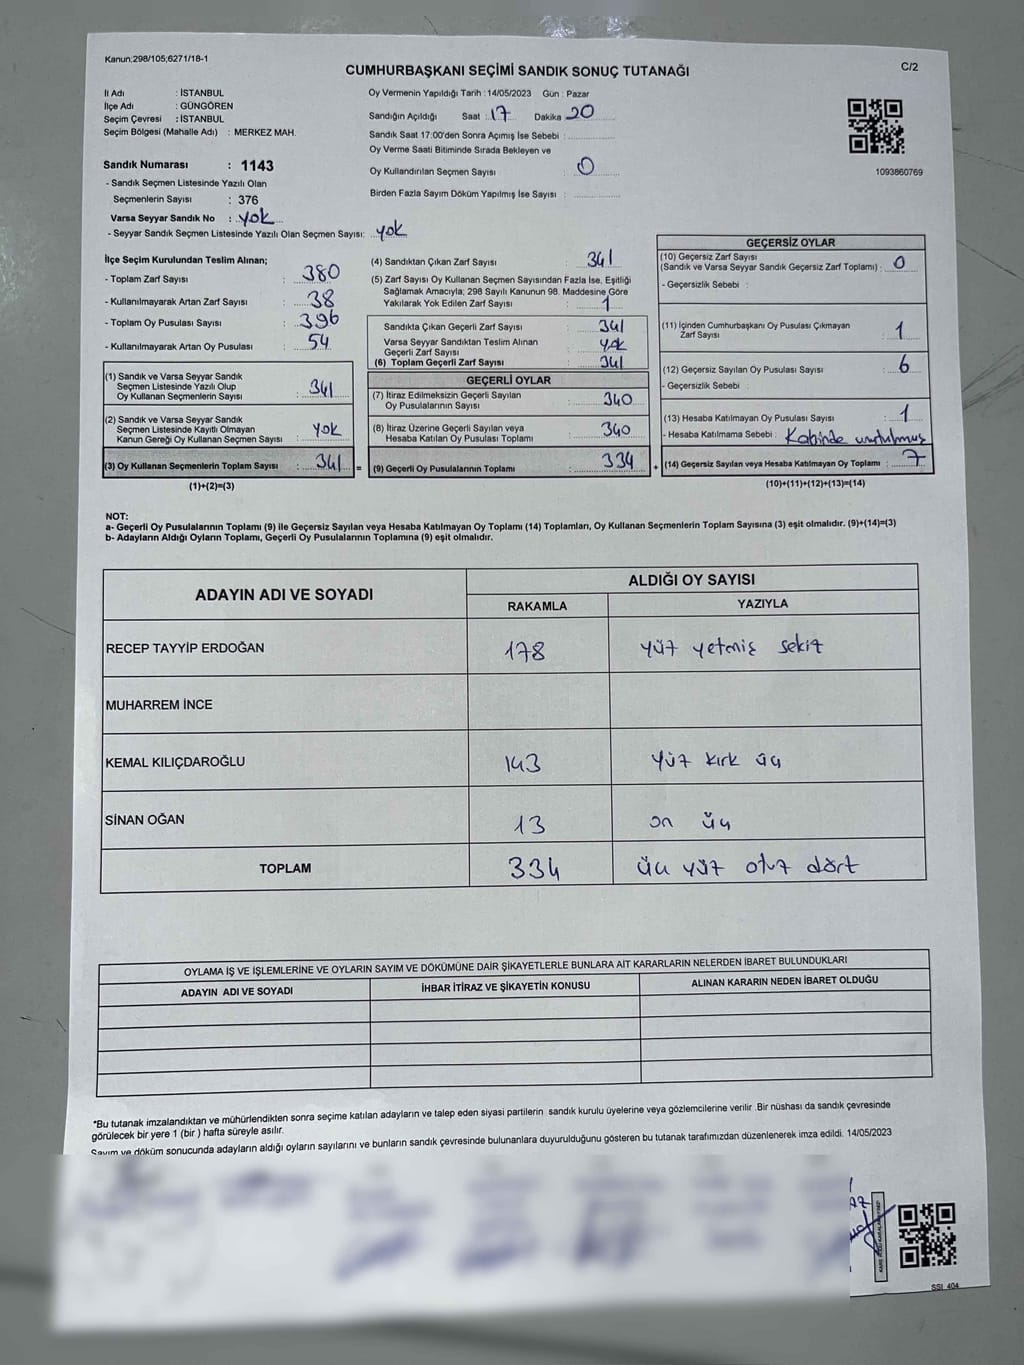 Kanun:298/105;6271/18-1
C/2
CUMHURBAŞKANI SEÇİMİ SANDIK SONUÇ TUTANAĞI
İl Adı : İSTANBUL
İlçe Adı : GÜNGÖREN
Seçim Çevresi : İSTANBUL
Seçim Bölgesi (Mahalle Adı) : MERKEZ MAH.
Sandık Numarası : 1143
- Sandık Seçmen Listesinde Yazılı Olan
Seçmenlerin Sayısı : 376
Varsa Seyyar Sandık No : yok
- Seyyar Sandık Seçmen Listesinde Yazılı Olan Seçmen Sayısı: yok
Oy Vermenin Yapıldığı Tarih : 14/05/2023 Gün : Pazar
Sandığın Açıldığı Saat : 17 Dakika 20
Sandık Saat 17:00'den Sonra Açımış İse Sebebi :
Oy Verme Saati Bitiminde Sırada Bekleyen ve
Oy Kullandırılan Seçmen Sayısı : 0
Birden Fazla Sayım Döküm Yapılmış İse Sayısı :
1093860769
İlçe Seçim Kurulundan Teslim Alınan;
- Toplam Zarf Sayısı : 380
- Kullanılmayarak Artan Zarf Sayısı : 38
- Toplam Oy Pusulası Sayısı : 396
- Kullanılmayarak Artan Oy Pusulası : 54
(1) Sandık ve Varsa Seyyar Sandık
Seçmen Listesinde Yazılı Olup
Oy Kullanan Seçmenlerin Sayısı : 341
(2) Sandık ve Varsa Seyyar Sandık
Seçmen Listesinde Kayıtlı Olmayan
Kanun Gereği Oy Kullanan Seçmen Sayısı : YOK
(3) Oy Kullanan Seçmenlerin Toplam Sayısı : 341 =
(1)+(2)=(3)
(4) Sandıktan Çıkan Zarf Sayısı : 341
(5) Zarf Sayısı Oy Kullanan Seçmen Sayısından Fazla İse, Eşitliği
Sağlamak Amacıyla; 298 Sayılı Kanunun 98. Maddesine Göre
Yakılarak Yok Edilen Zarf Sayısı : 1
Sandıkta Çıkan Geçerli Zarf Sayısı : 341
Varsa Seyyar Sandıktan Teslim Alınan
Geçerli Zarf Sayısı : yok
(6) Toplam Geçerli Zarf Sayısı : 341
GEÇERLİ OYLAR
(7) İtiraz Edilmeksizin Geçerli Sayılan
Oy Pusulalarının Sayısı : 340
(8) İtiraz Üzerine Geçerli Sayılan veya
Hesaba Katılan Oy Pusulası Toplamı : 340
(9) Geçerli Oy Pusulalarının Toplamı : 334 +
GEÇERSİZ OYLAR
(10) Geçersiz Zarf Sayısı
(Sandık ve Varsa Seyyar Sandık Geçersiz Zarf Toplamı) : 0
- Geçersizlik Sebebi :
(11) İçinden Cumhurbaşkanı Oy Pusulası Çıkmayan
Zarf Sayısı : 1
(12) Geçersiz Sayılan Oy Pusulası Sayısı : 6
- Geçersizlik Sebebi :
(13) Hesaba Katılmayan Oy Pusulası Sayısı : 1
- Hesaba Katılmama Sebebi : Kabinde unutulmuş
(14) Geçersiz Sayılan veya Hesaba Katılmayan Oy Toplamı : 7
(10)+(11)+(12)+(13)=(14)
NOT:
a- Geçerli Oy Pusulalarının Toplamı (9) ile Geçersiz Sayılan veya Hesaba Katılmayan Oy Toplamı (14) Toplamları, Oy Kullanan Seçmenlerin Toplam Sayısına (3) eşit olmalıdır. (9)+(14)=(3)
b- Adayların Aldığı Oyların Toplamı, Geçerli Oy Pusulalarının Toplamına (9) eşit olmalıdır.
ADAYIN ADI VE SOYADI
ALDIĞI OY SAYISI
RAKAMLA YAZIYLA
RECEP TAYYİP ERDOĞAN 178 yüz yetmiş sekiz
MUHARREM İNCE
KEMAL KILIÇDAROĞLU 143 yüz kırk üç
SİNAN OĞAN 13 on üç
TOPLAM 334 üç yüz otuz dört
OYLAMA İŞ VE İŞLEMLERİNE VE OYLARIN SAYIM VE DÖKÜMÜNE DAİR ŞİKAYETLERLE BUNLARA AİT KARARLARIN NELERDEN İBARET BULUNDUKLARI
ADAYIN ADI VE SOYADI İHBAR İTİRAZ VE ŞİKAYETİN KONUSU ALINAN KARARIN NEDEN İBARET OLDUĞU
*Bu tutanak imzalandıktan ve mühürlendikten sonra seçime katılan adayların ve talep eden siyasi partilerin sandık kurulu üyelerine veya gözlemcilerine verilir .Bir nüshası da sandık çevresinde
görülecek bir yere 1 (bir ) hafta süreyle asılır.
Sayım ve döküm sonucunda adayların aldığı oyların sayılarını ve bunların sandık çevresinde bulunanlara duyurulduğunu gösteren bu tutanak tarafımızdan düzenlenerek imza edildi. 14/05/2023
SSI_404